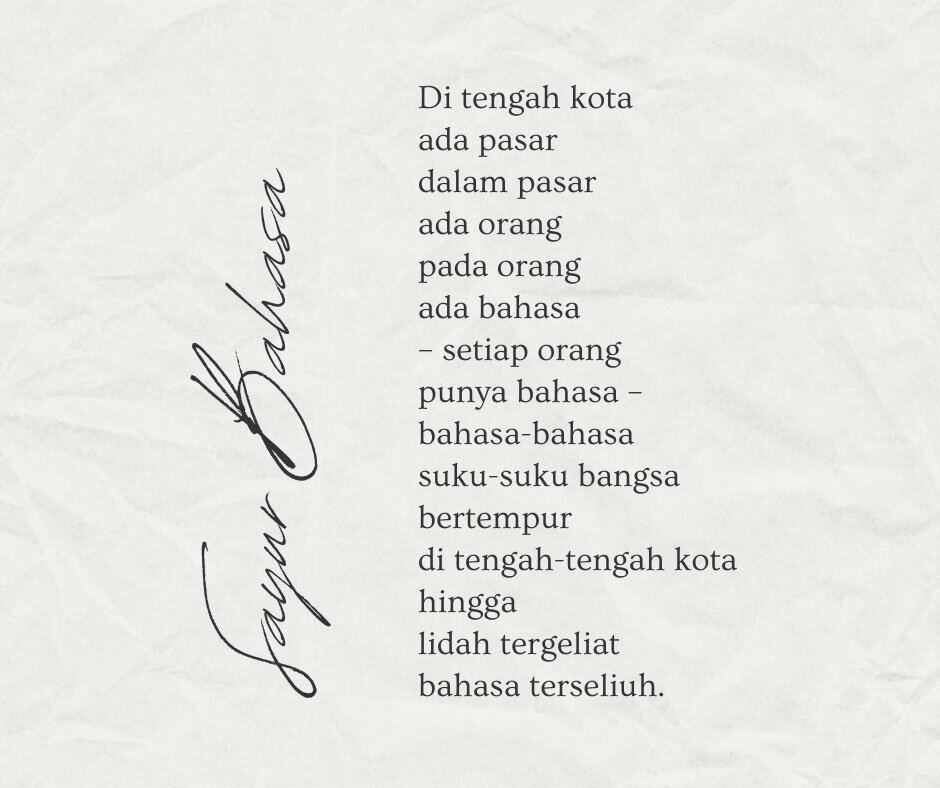 Sayur Bahasa
Di tengah kota
ada pasar
dalam pasar
ada orang
pada orang
ada bahasa
– setiap orang
punya bahasa –
bahasa-bahasa
suku-suku bangsa
bertempur
di tengah-tengah kota
hingga
lidah tergeliat
bahasa terseliuh.